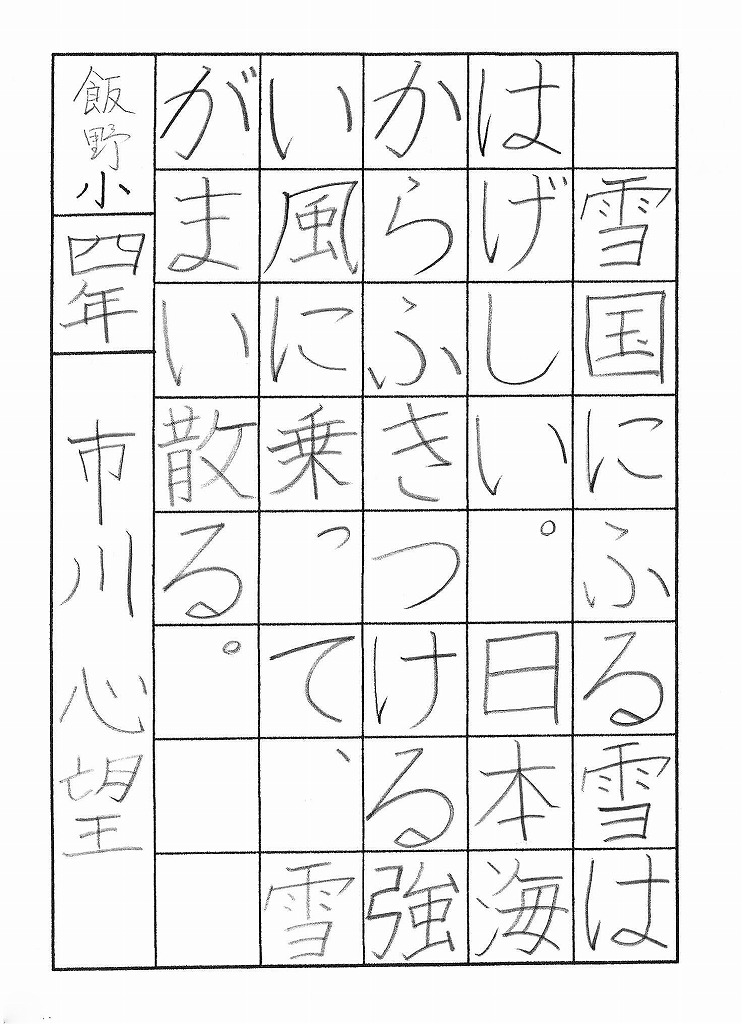 雪国にふる雪は
はげしい。日本海
からふきつける強
い風に乗って、雪
がまい散る。
飯野小 四年 市川 心望